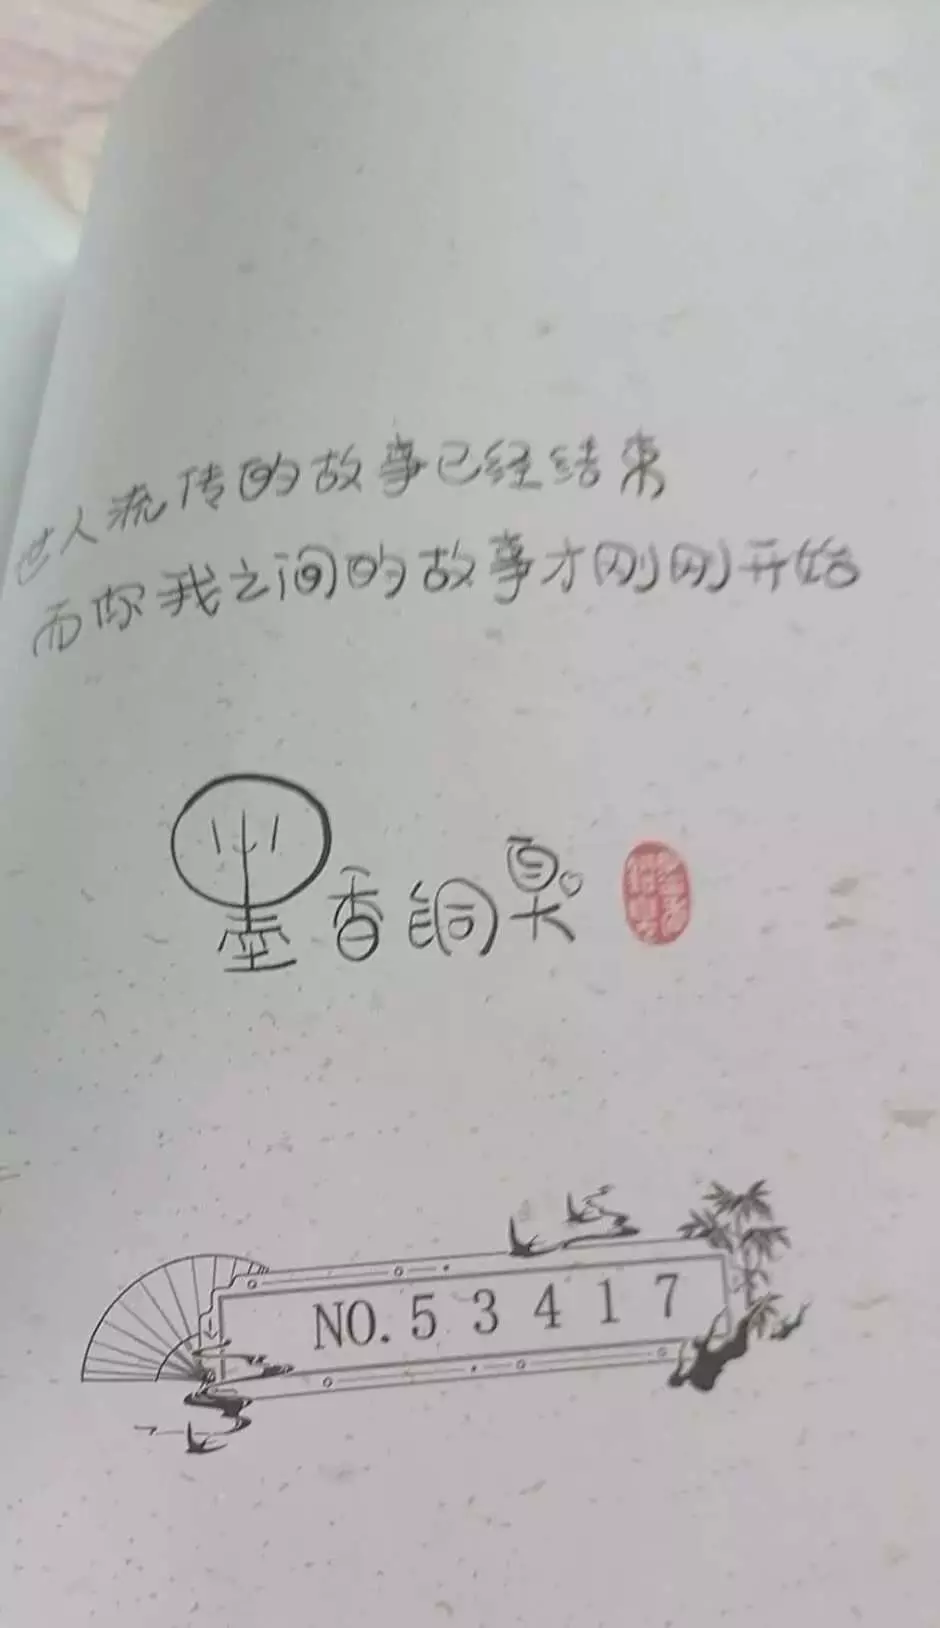 世人流传的故事已经结束
而你我之间的故事才刚刚开始
墨香铜臭
NO.53417